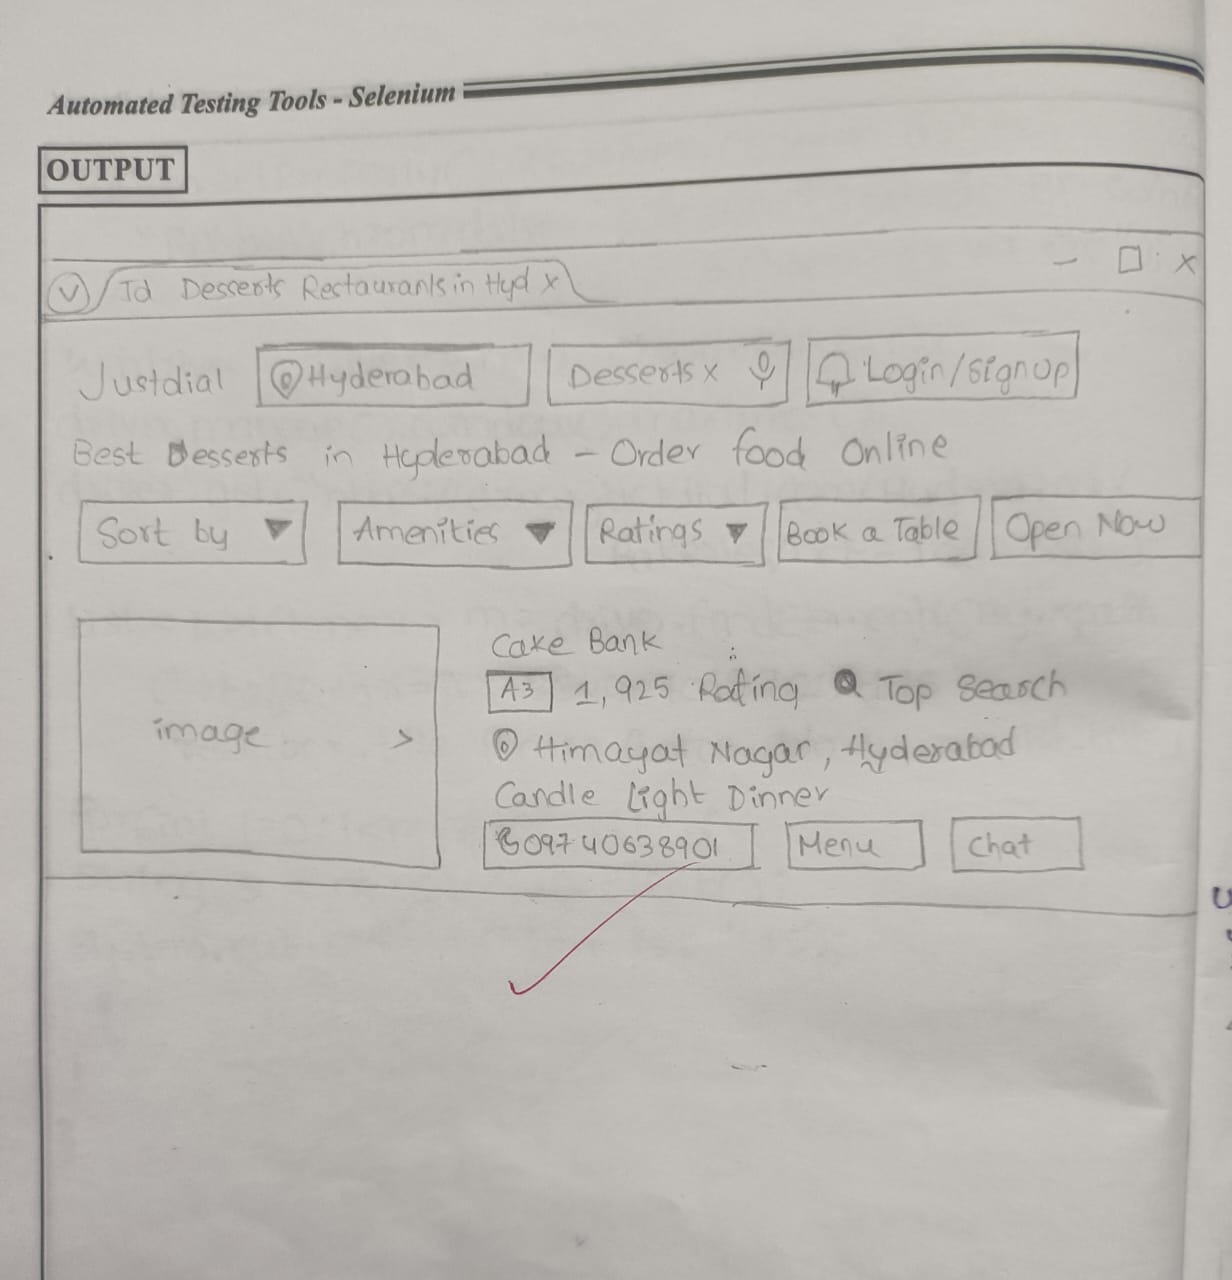 Automated Testing Tools - Selenium
OUTPUT
Jd Desserts Restaurants in Hyd x
Justdial Hyderabad Desserts x Login/SignUp
Best Desserts in Hyderabad - Order food Online
Sort by Amenities Ratings Book a Table Open Now
image >
Cake Bank
A3 1,925 Rating Top Search
Himayat Nagar, Hyderabad
Candle Light Dinner
09740638901 Menu Chat